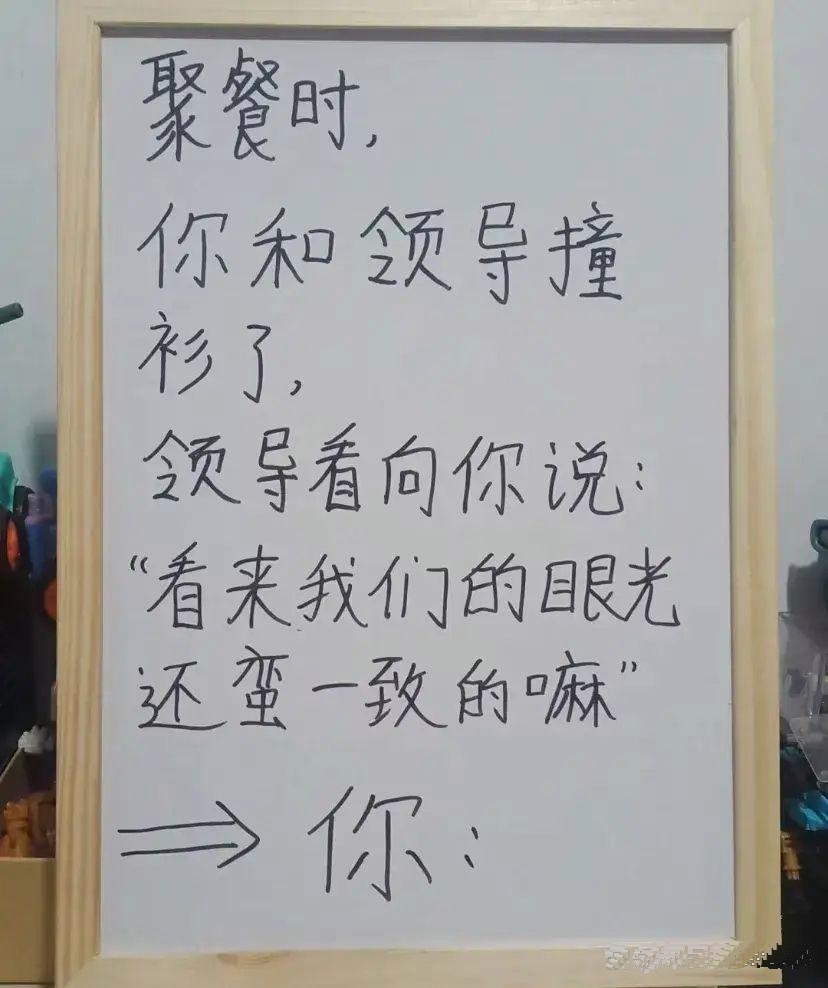 聚餐时，
你和领导撞
衫了，
领导看向你说：
“看来我们的眼光
还蛮一致的嘛”
⇒ 你：